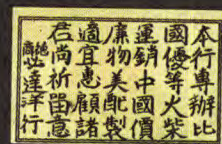 本行專辦比
國優等火柴
運銷中國價
廉物美配製
適宜惠顧諸
君尚祈留意
達洋行